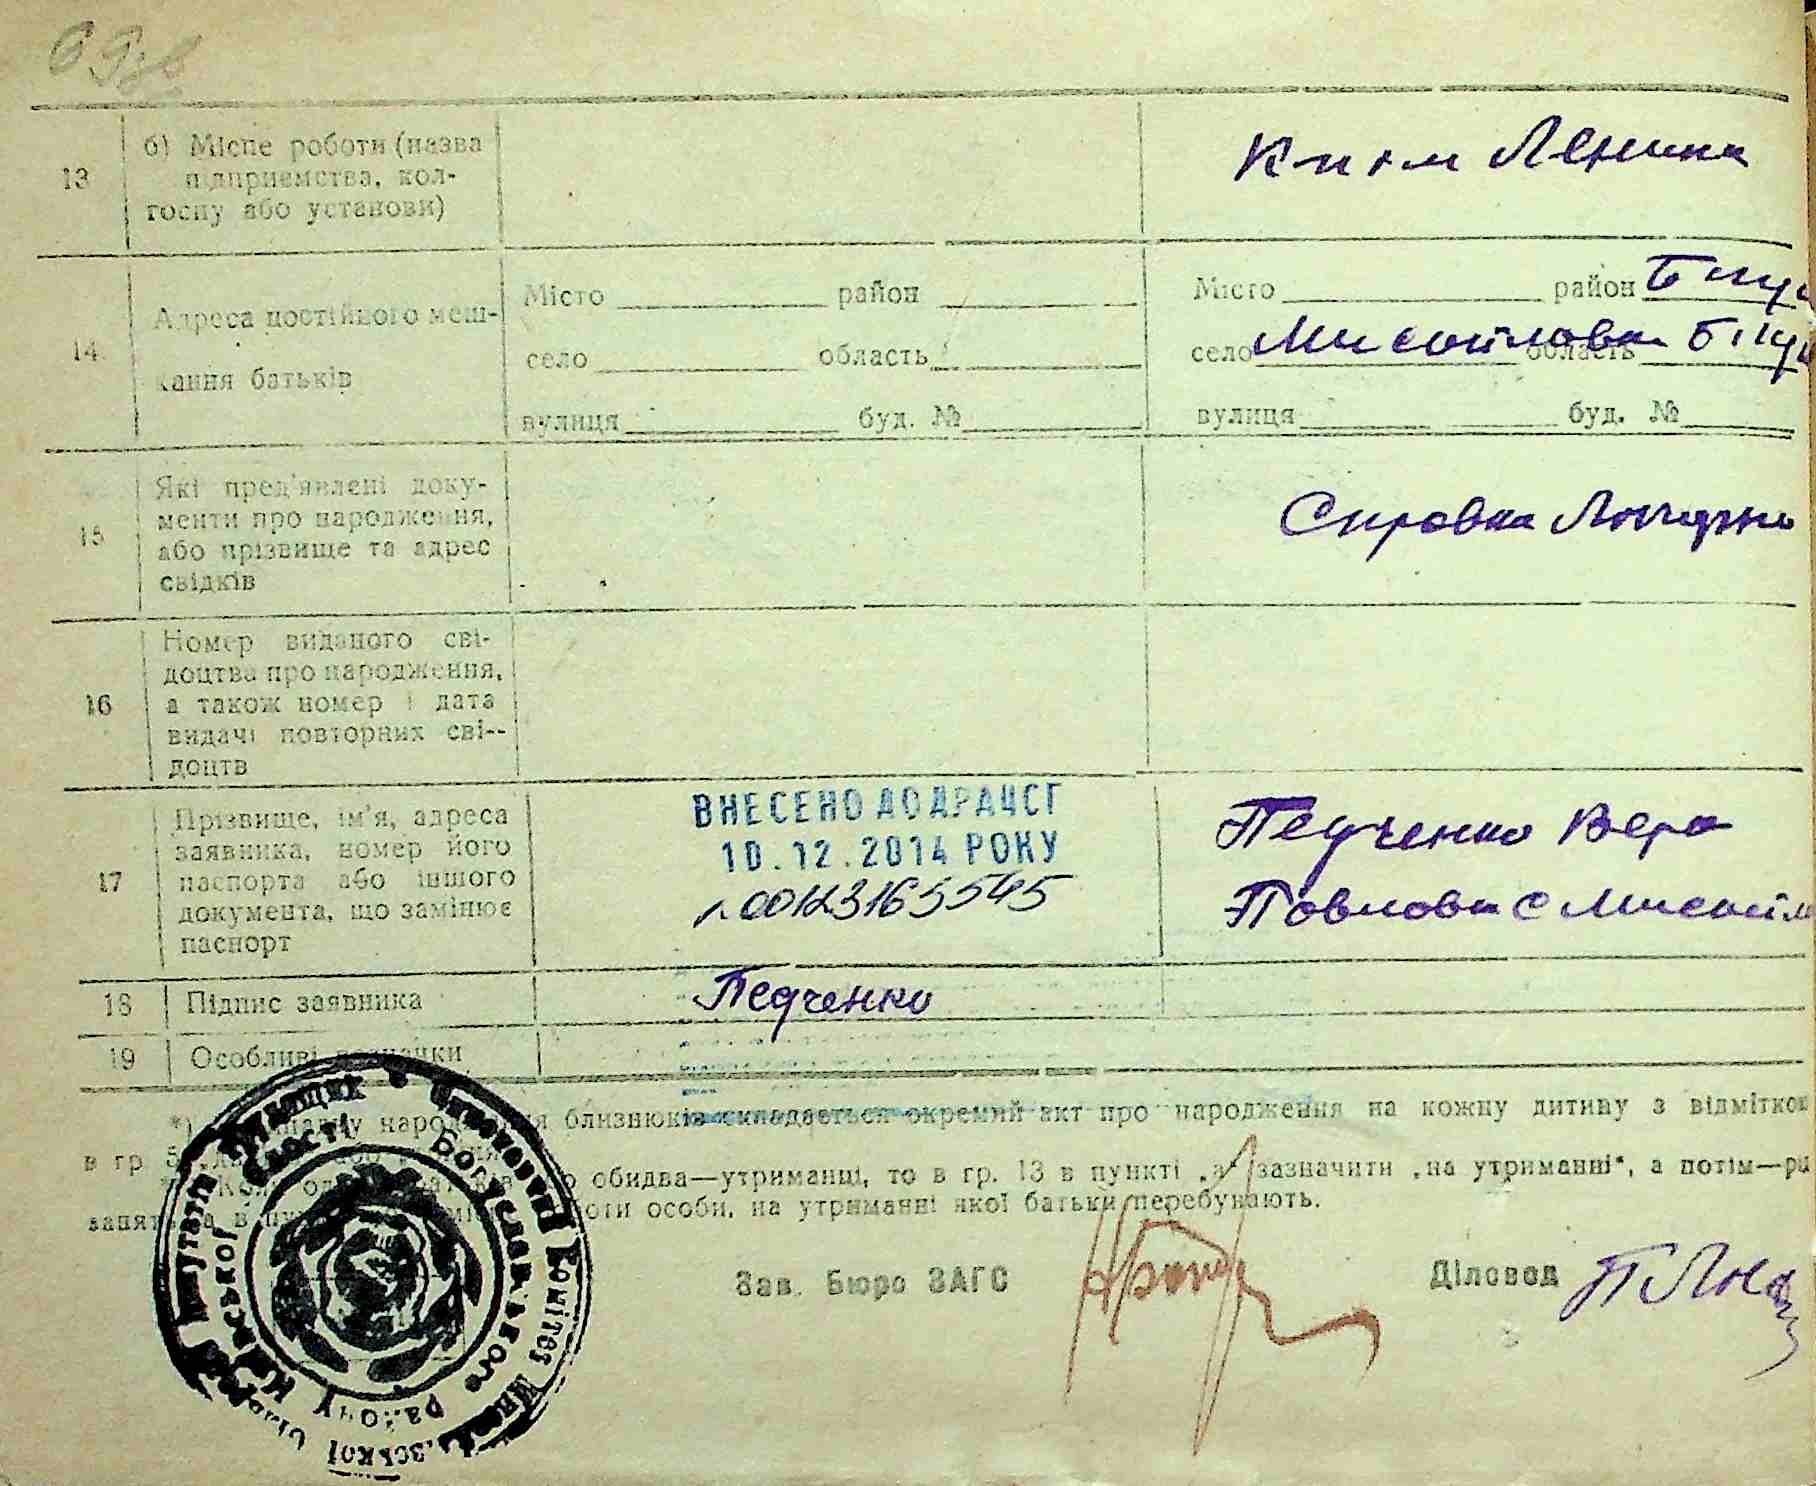 13 б) Місце роботи (назва
підприємства, кол-
госпу або установи)
Ленина
14. Адреса постійного меш-
кання батьків
Місто район
село область
вулиця буд. №
Місто район
село область
вулиця буд. №
15 Які пред'явлені доку-
менти про народження,
або прізвище та адрес
свідків
Справка
16 Номер виданого сві-
доцтва про народження,
а також номер і дата
видачі повторних сві-
доцтв
17 Прізвище, ім'я, адреса
заявника, номер його
паспорта або іншого
документа, що замінює
паспорт
ВНЕСЕНО ДО ДРАЦСГ
10.12.2014 РОКУ
00123165545
Педченко Вера
Павловна с
18 Підпис заявника Педченко
19 Особливі
народження близнюків складається окремий акт про народження на кожну дитину з відміткою
в гр 5 обидва—утриманці, то в гр. 13 в пункті „а“ зазначити „на утриманні“, а потім—
особи, на утриманні якої батьки перебувають.
Зав. Бюро ЗАГС
Діловод
Виконавчий Комітет
Богуславського району
Київської